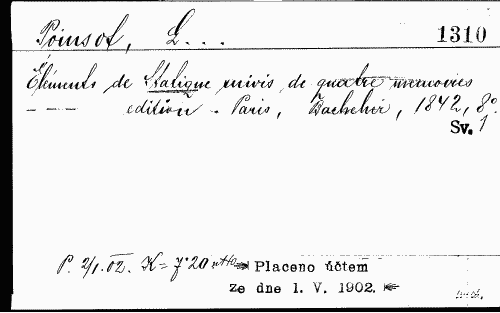 Poinsot, L. . .
1310
Éléments de Statique suivis de quatre memoires
— — edition - Paris, Bachelier, 1842, 8°.
Sv. 1
P. 2/1. 02. K = 7·20 netto
Placeno účtem
ze dne 1. V. 1902.